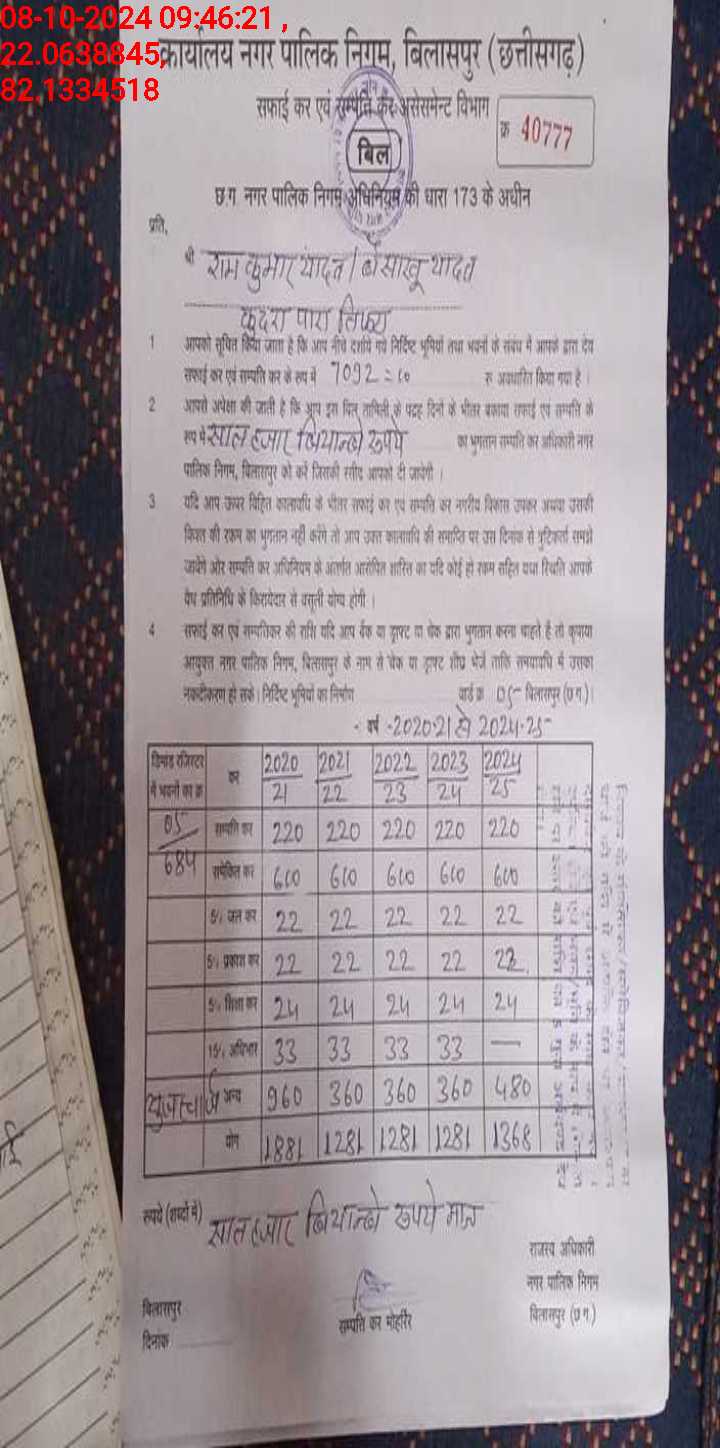 08-10-2024 09:46:21 ,
22.0638845,
82.1334518
कार्यालय नगर पालिक निगम, बिलासपुर (छत्तीसगढ़)
सफाई कर एवं सम्पत्ति कर असेसमेन्ट विभाग
क्र 40777
बिल
छ.ग. नगर पालिक निगम अधिनियम की धारा 173 के अधीन
प्रति,
श्री राम कुमार यादव / बैसाखू यादव
कुदरा पारा तिफरा
1 आपको सूचित किया जाता है कि आप नीचे दर्शाये गये निर्दिष्ट भूमियों तथा भवनों के संबंध में आपके द्वारा देय
सफाई कर एवं सम्पत्ति कर के रूप में 7092 = 00 रु अवधारित किया गया है ।
2 आपसे अपेक्षा की जाती है कि आप इस बिल तामिली के पंद्रह दिनों के भीतर बकाया सफाई एवं सम्पत्ति के
रूप में सात हजार बियान्बे रुपये का भुगतान सम्पत्ति कर अधिकारी नगर
पालिक निगम, बिलासपुर को करें जिसकी रसीद आपको दी जायेगी ।
3 यदि आप ऊपर विहित कालावधि के भीतर सफाई कर एवं सम्पत्ति कर नगरीय विकास उपकर अथवा उसकी
किश्त की रकम का भुगतान नहीं करेंगे तो आप उक्त कालावधि की समाप्ति पर उस दिनांक से त्रुटिकर्ता समझे
जायेंगे और सम्पत्ति कर अधिनियम के अंतर्गत आरोपित शास्ति का यदि कोई हो रकम सहित यथा स्थिति आपके
वैध प्रतिनिधि के किरायेदार से वसूली योग्य होगी ।
4 सफाई कर एवं सम्पत्तिकर की राशि यदि आप बैंक या ड्राफ्ट या चेक द्वारा भुगतान करना चाहते है तो कृपया
आयुक्त नगर पालिक निगम, बिलासपुर के नाम से चेक या ड्राफ्ट शीघ्र भेजें ताकि समयावधि में उसका
नकदीकरण हो सके । निर्दिष्ट भूमियों का निर्माण वार्ड क्र 05 बिलासपुर (छ.ग.)।
वर्ष -2020-21 से 2024-25
डिमांड रजिस्टर में भवनों का क्र कर 2020/21 2021/22 2022/23 2023/24 2024/25
05/684 सम्पत्ति कर 220 220 220 220 220
समेकित कर 600 600 600 600 600
5% जल कर 22 22 22 22 22
5% प्रकाश कर 22 22 22 22 22
5% शिक्षा कर 24 24 24 24 24
15% अधिभार 33 33 33 33 —
यूजर चार्ज अन्य 960 360 360 360 480
योग 1881 1281 1281 1281 1368
रूपये (शब्दों में) सात हजार बियान्बे रुपये मात्र
राजस्व अधिकारी
नगर पालिक निगम
बिलासपुर (छ.ग.)
सम्पत्ति कर मोहर्रिर
बिलासपुर
दिनांक